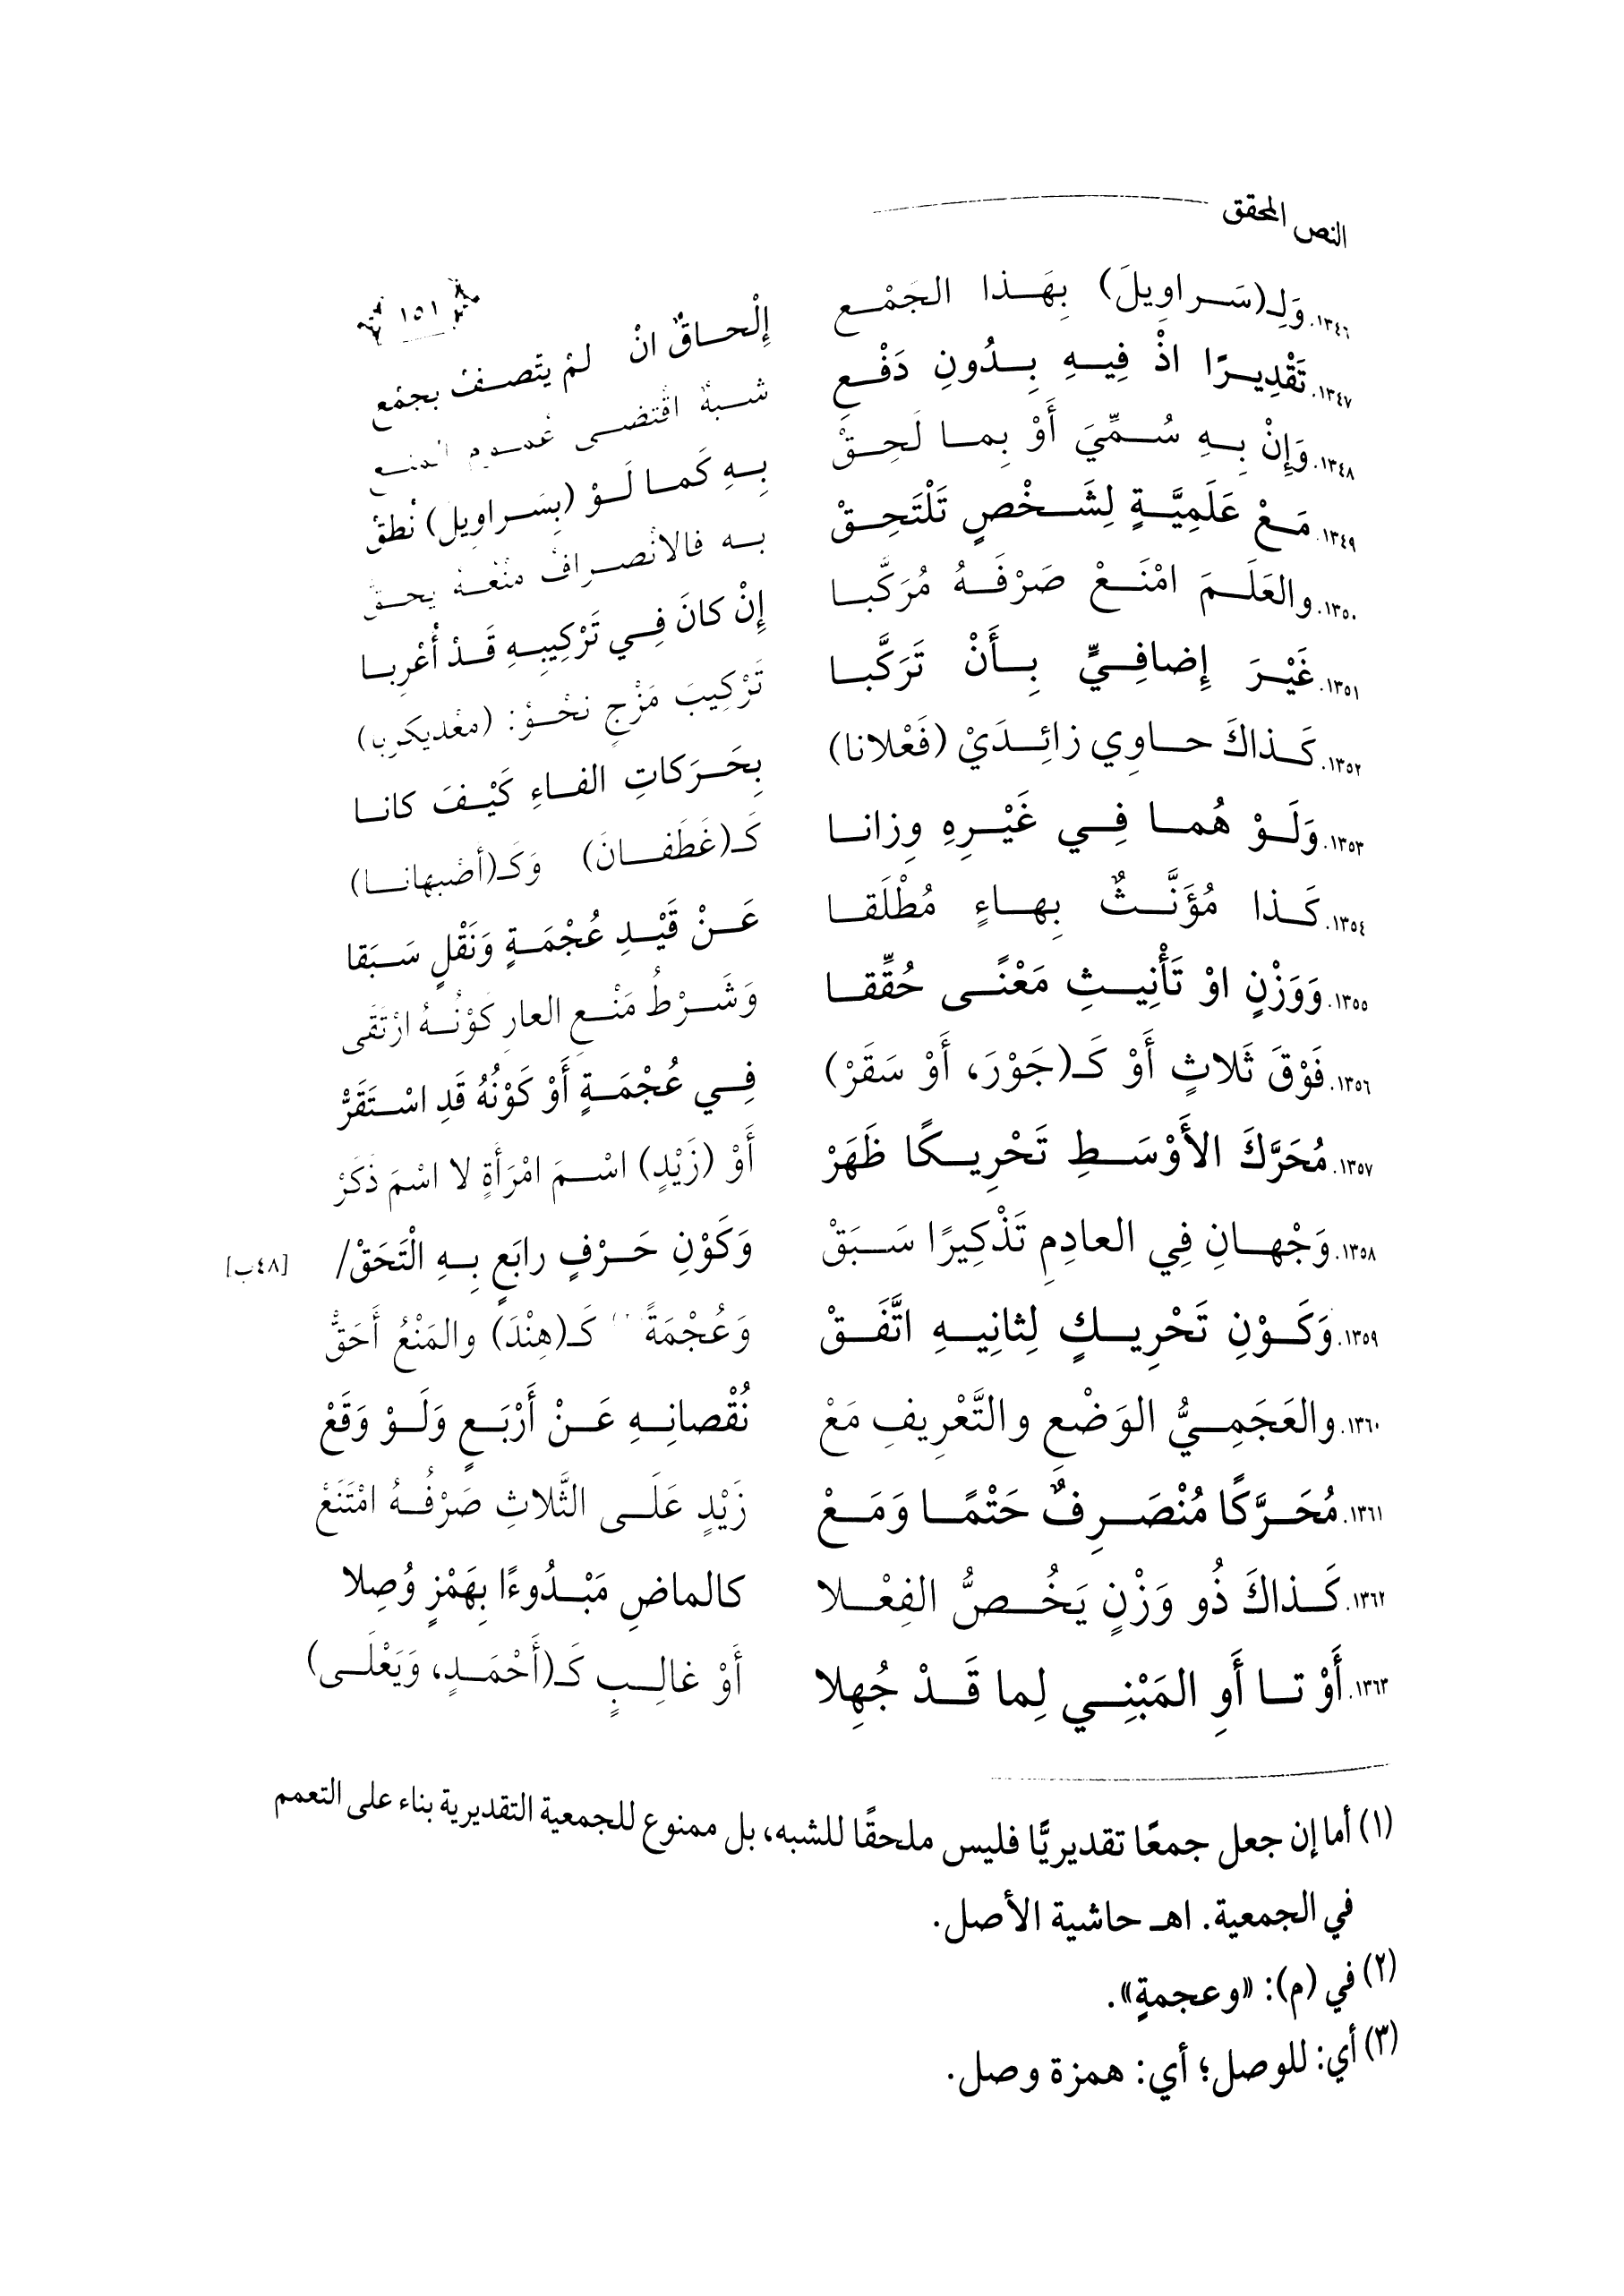 النص المحقق
١٥١
١٣٤٦. وَلِـ(سَراوِيلَ) بِهَذا الجَمْعِ إِلْحاقٌ انْ لمْ يتّصفْ بجمْعِ
١٣٤٧. تَقْدِيرًا اذْ فِيهِ بِدُونِ دَفْعِ شبهٌ اقْتضى عُموم المنع
١٣٤٨. وَإِنْ بِهِ سُمِّيَ أَوْ بِما لَحِقْ بِهِ كَما لَوْ (بِسَراوِيلَ) نُطقْ
١٣٤٩. مَعْ عَلَمِيَّةٍ لِشَخْصٍ تَلْتَحِقْ به فالانْصرافُ منْعهُ يحقْ
١٣٥٠. والعَلَمَ امْنَعْ صَرْفَهُ مُرَكَّبا إِنْ كانَ فِي تَرْكِيبِهِ قَدْ أُعْرِبا
١٣٥١. غَيْرَ إِضافِيٍّ بِأَنْ تَرَكَّبا تَرْكِيبَ مَزْجٍ نحْوُ: (معْديكرِبا)
١٣٥٢. كَذاكَ حاوِي زائِدَيْ (فَعْلانا) بِحَرَكاتِ الفاءِ كَيْفَ كانا
١٣٥٣. وَلَوْ هُما فِي غَيْرِهِ وِزانا كَـ(غَطَفانَ) وَكَـ(أصْبهانا)
١٣٥٤. كَذا مُؤَنَّثٌ بِهاءٍ مُطْلَقا عَنْ قَيْدِ عُجْمَةٍ وَنَقْلٍ سَبَقا
١٣٥٥. وَوَزْنٍ اوْ تَأْنِيثِ مَعْنًى حُقِّقا وَشَرْطُ مَنْعِ العارِ كَوْنُهُ ارْتَقَى
١٣٥٦. فَوْقَ ثَلاثٍ أَوْ كَـ(جَوْرَ، أَوْ سَقَرْ) فِي عُجْمَةٍ أَوْ كَوْنُهُ قَدِ اسْتَقَرّْ
١٣٥٧. مُحَرَّكَ الأَوْسَطِ تَحْرِيكًا ظَهَرْ أَوْ (زَيْدٍ) اسْمَ امْرَأَةٍ لا اسْمَ ذَكَرْ
١٣٥٨. وَجْهانِ فِي العادِمِ تَذْكِيرًا سَبَقْ وَكَوْنِ حَرْفٍ رابَعٍ بِهِ الْتَحَقْ/ [٤٨ب]
١٣٥٩. وَكَوْنِ تَحْرِيكٍ لِثانِيهِ اتَّفَقْ وَعُجْمَةً كَـ(هِنْدَ) والمَنْعُ أَحَقّْ
١٣٦٠. والعَجَمِيُّ الوَضْعِ والتَّعْرِيفِ مَعْ نُقْصانِهِ عَنْ أَرْبَعٍ وَلَوْ وَقَعْ
١٣٦١. مُحَرَّكًا مُنْصَرِفٌ حَتْمًا وَمَعْ زَيْدٍ عَلَى الثَّلاثِ صَرْفُهُ امْتَنَعْ
١٣٦٢. كَذاكَ ذُو وَزْنٍ يَخُصُّ الفِعْلا كالماضِ مَبْدُوءًا بِهَمْزٍ وُصِلا
١٣٦٣. أَوْ تا أَوِ المَبْنِي لِما قَدْ جُهِلا أَوْ غالِبٍ كَـ(أَحْمَدٍ، وَيَعْلَى)
(١) أما إن جعل جمعًا تقديريًّا فليس ملحقًا للشبه، بل ممنوع للجمعية التقديرية بناء على التعمم
في الجمعية. اهـ حاشية الأصل.
(٢) في (م): «وعجمةٍ».
(٣) أي: للوصل؛ أي: همزة وصل.